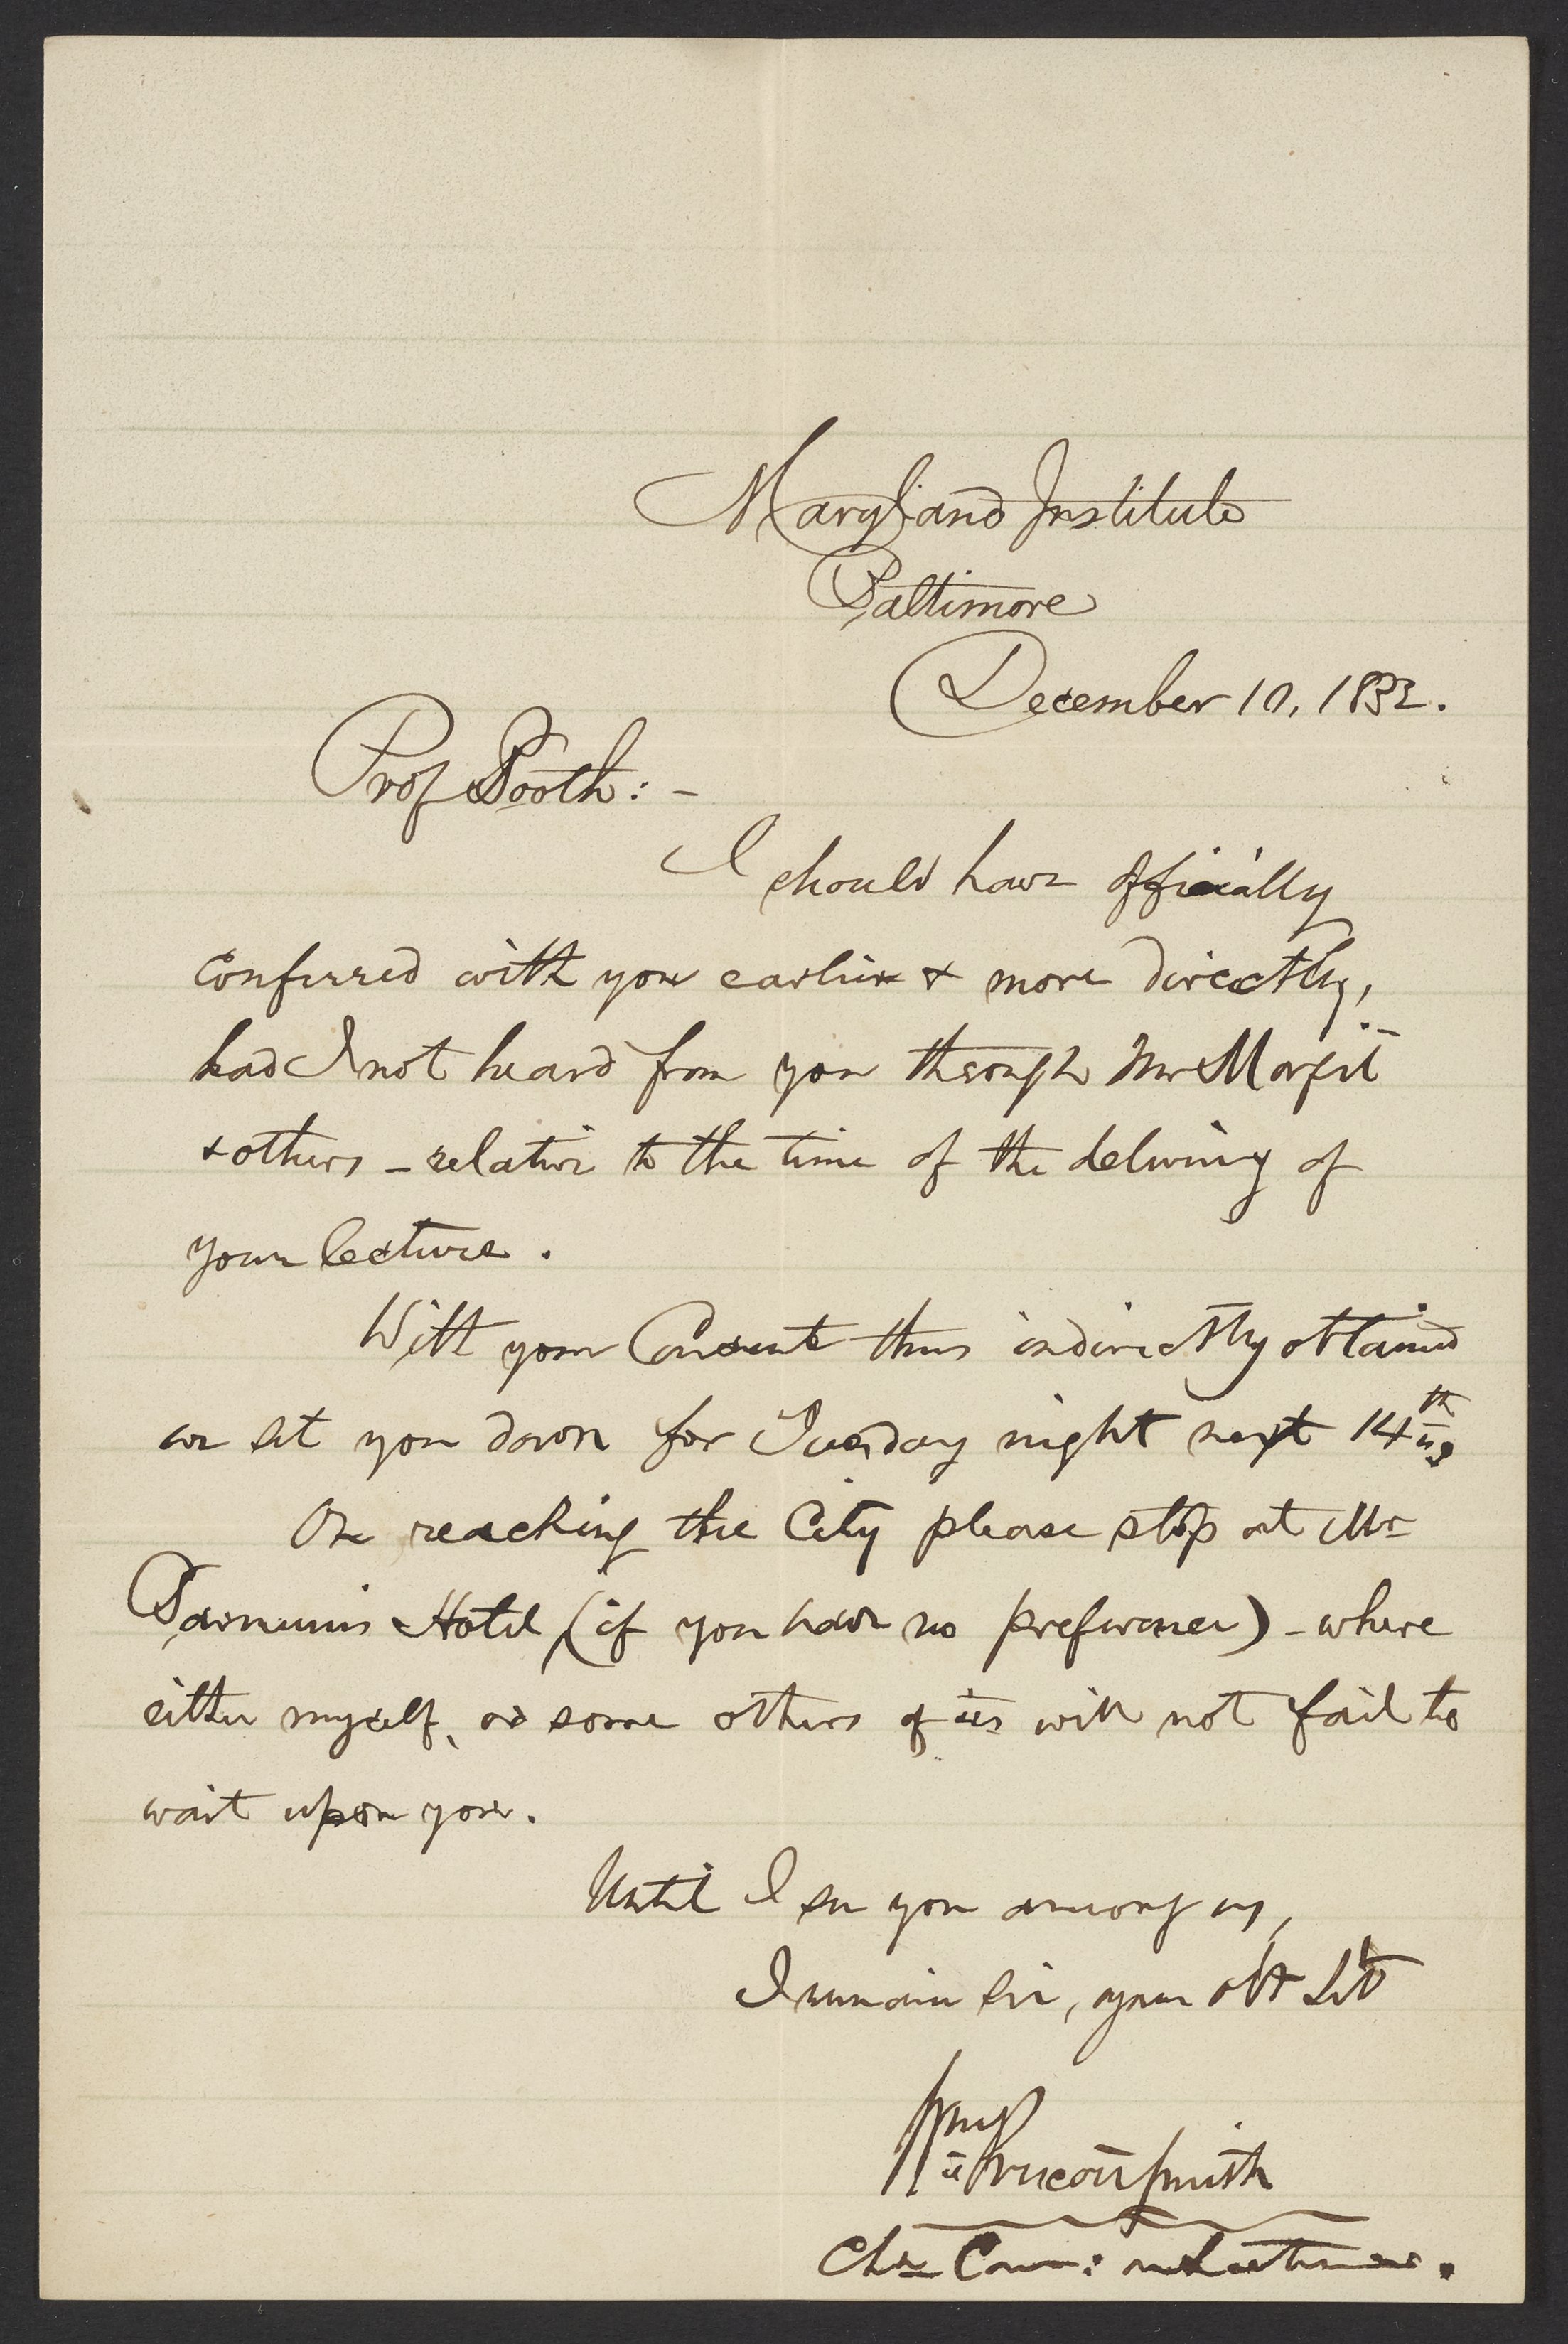 Maryland Institute
Baltimore
December 10, 1852.
Prof Booth: -
I should have officially
conferred with you earlier & more directly,
had I not heard from you through Mr Morfit
& others - relative to the time of the delivering of
your lecture.
With your Consent thus indirectly obtained
we set you down for Tuesday night next 14th
On reaching the City please stop at Mr
Barnums Hotel (if you have no preference) - where
either myself, or some others of us will not fail to
wait upon you.
Until I see you among us,
I remain sir, your obt Svt
Smith
Chn Com: on Lectures.